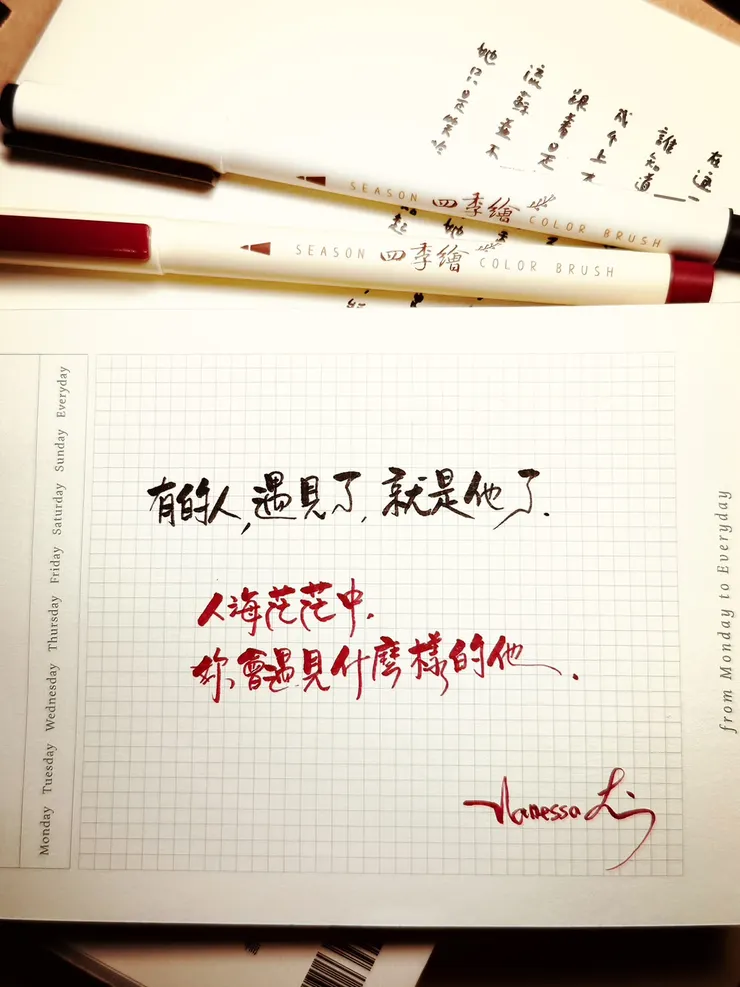 在這
誰知道
戏千上才
跟著是
流蘇並不
她只是笑吟
SEASON 四季繪 COLOR BRUSH
SEASON 四季繪 COLOR BRUSH
Monday Tuesday Wednesday Thursday Friday Saturday Sunday Everyday
有的人,遇見了,就是他了.
人海茫茫中.
妳會遇見什麼樣的他.
from Monday to Everyday
Vanessa